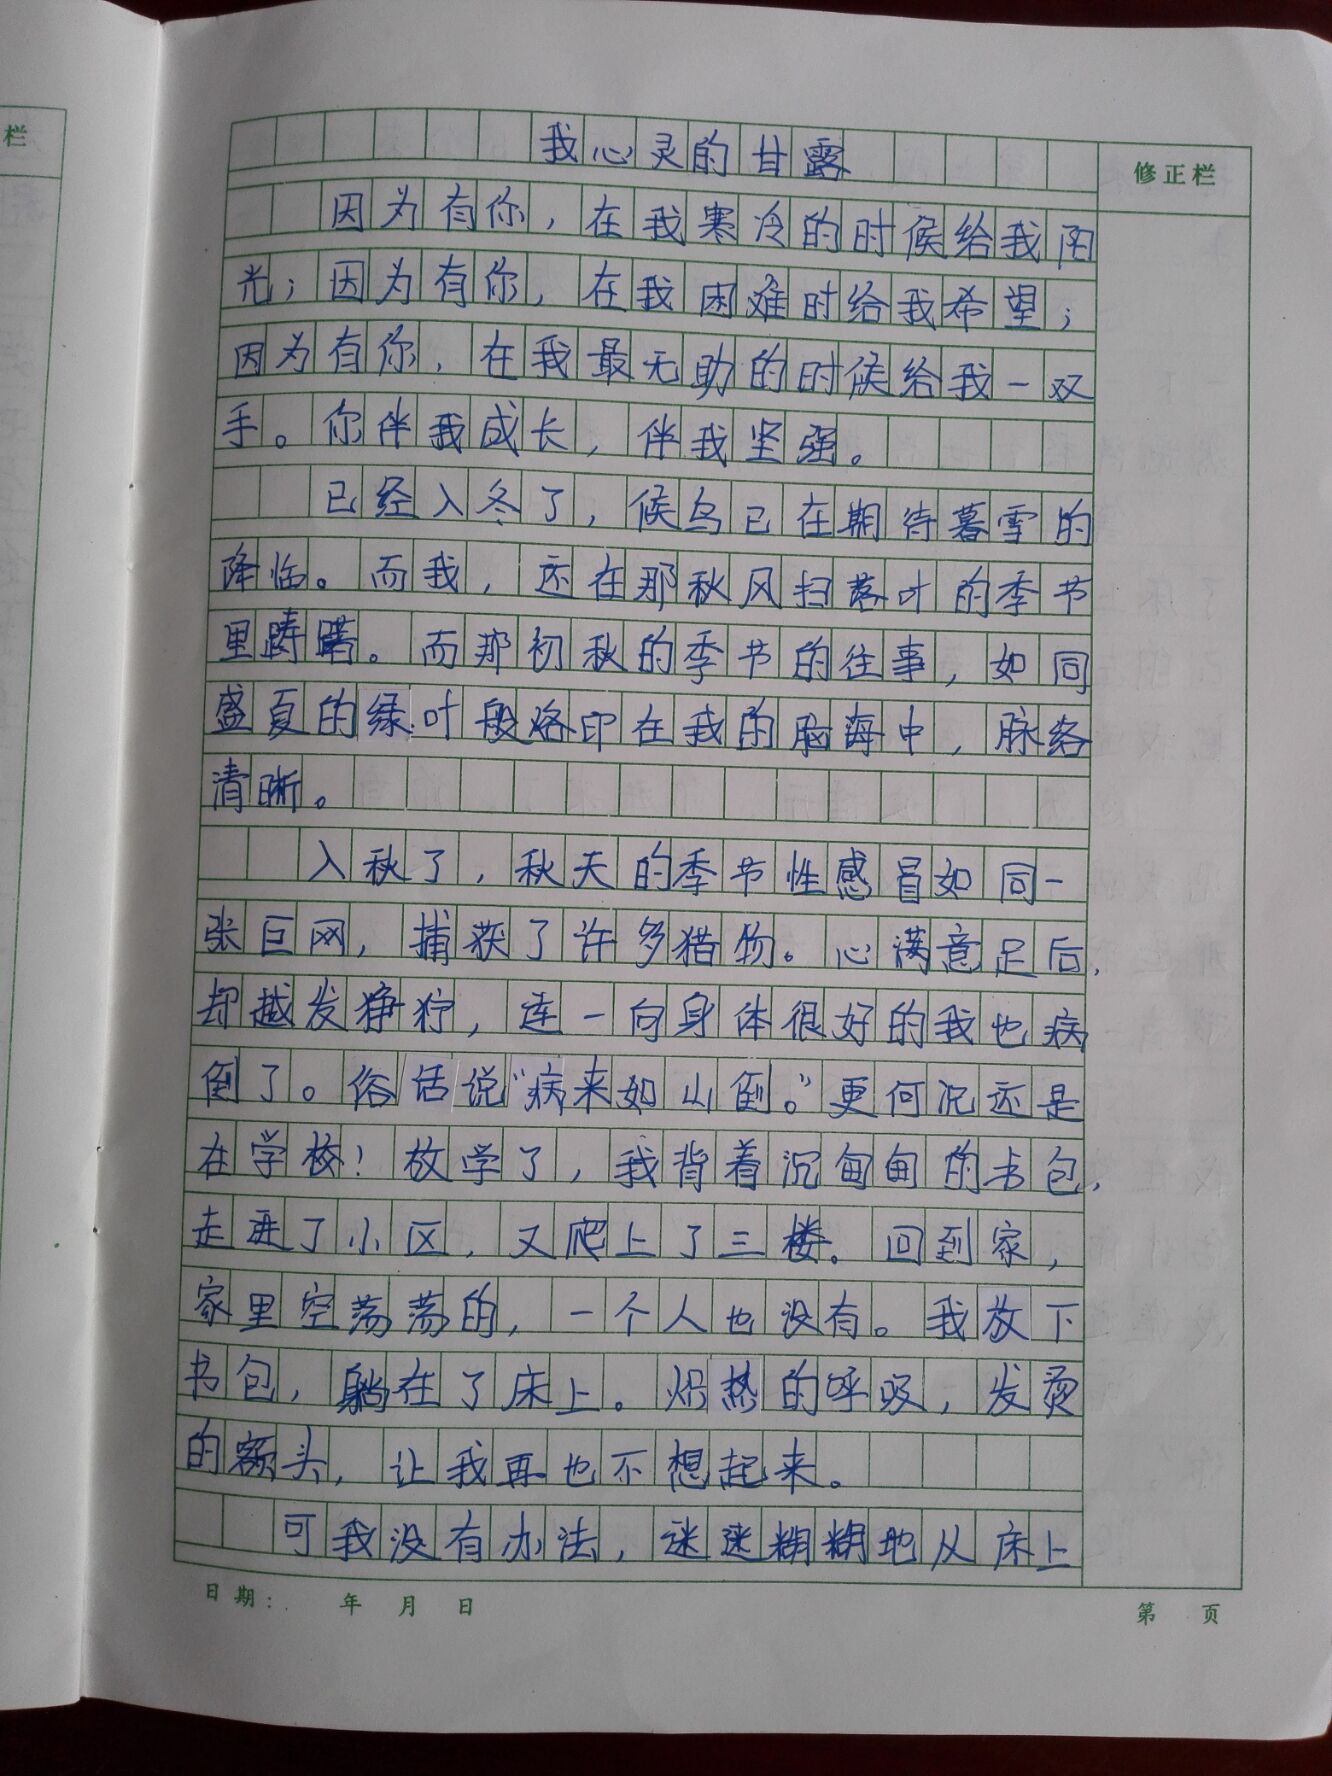 栏
修正栏
我心灵的甘露
因为有你，在我寒冷的时候给我阳
光；因为有你，在我困难时给我希望；
因为有你，在我最无助的时候给我一双
手。你伴我成长，伴我坚强。
已经入冬了，候鸟已在期待暮雪的
降临。而我，还在那秋风扫落叶的季节
里踌躇。而那初秋的季节的往事，如同
盛夏的绿叶般烙印在我的脑海中，脉络
清晰。
入秋了，秋天的季节性感冒如同一
张巨网，捕获了许多猎物。心满意足后，
却越发狰狞，连一向身体很好的我也病
倒了。俗话说“病来如山倒。”更何况还是
在学校！放学了，我背着沉甸甸的书包，
走进了小区，又爬上了三楼。回到家，
家里空荡荡的，一个人也没有。我放下
书包，躺在了床上。炽热的呼吸，发烫
的额头，让我再也不想起来。
可我没有办法，迷迷糊糊地从床上
日期： 年 月 日
第 页